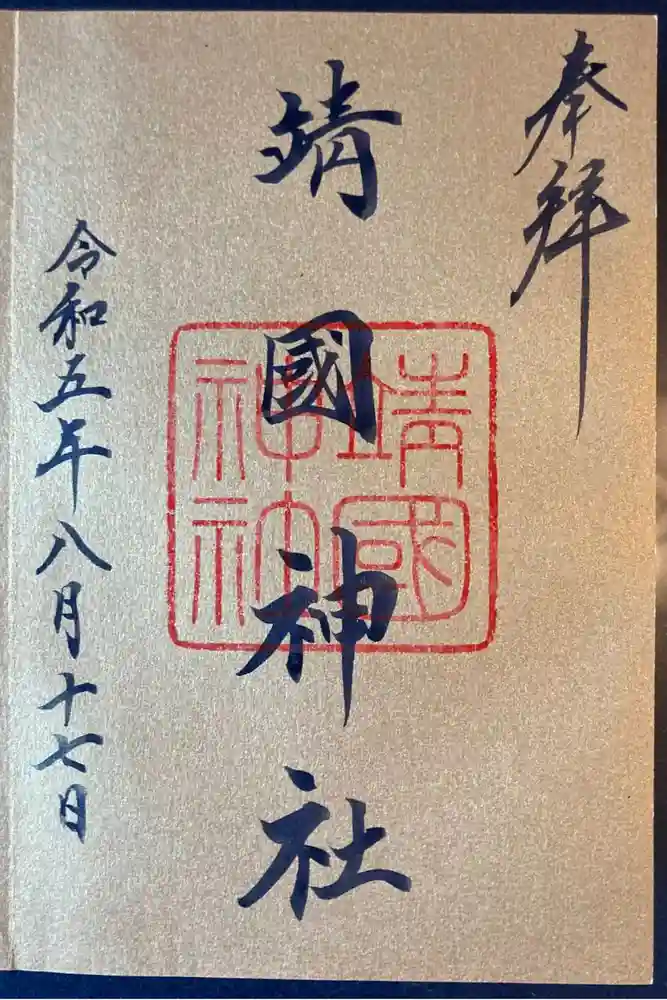 奉拝
靖國神社
靖國神社
令和五年八月十七日